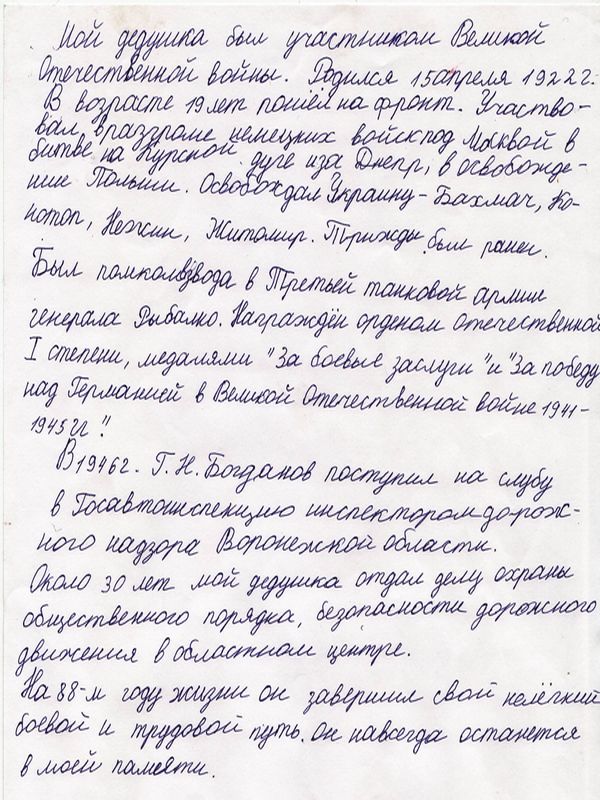 Мой дедушка был участником Великой
Отечественной войны. Родился 15 апреля 1922 г.
В возрасте 19 лет пошёл на фронт. Участво-
вал в разгроме немецких войск под Москвой в
битве на Курской дуге и за Днепр, в освобожде-
нии Польши. Освобождал Украину - Бахмач, Ко-
нотоп, Нежин, Житомир. Трижды был ранен.
Был помкомвзвода в Третьей танковой армии
генерала Рыбалко. Награждён орденом Отечественной
I степени, медалями "За боевые заслуги" и "За победу
над Германией в Великой Отечественной войне 1941-
1945 гг."
В 1946 г. Г. Н. Богданов поступил на слубу
в Госавтоинспекцию инспектором дорож-
ного надзора Воронежской области.
Около 30 лет мой дедушка отдал делу охраны
общественного порядка, безопасности дорожного
движения в областном центре.
На 88-м году жизни он завершил свой нелёгкий
боевой и трудовой путь. Он навсегда останется
в моей памяти.